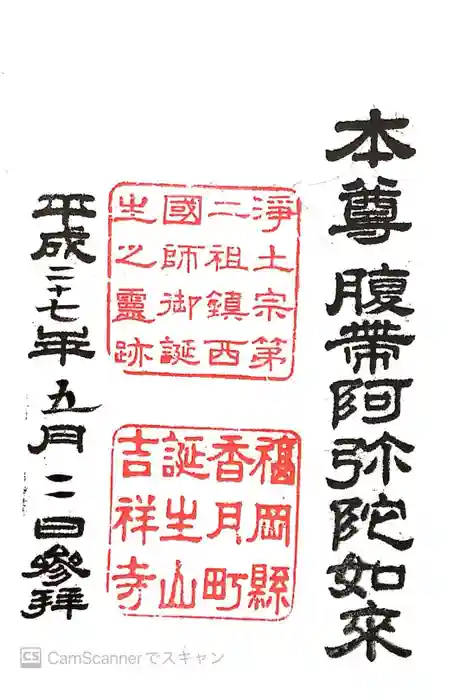 本尊 腹帶阿弥陀如来
淨土宗第
二祖鎮西
國師御誕
生之靈跡
福岡縣
香月町
誕生山
吉祥寺
平成二十七年五月二日參拜
CS CamScannerでスキャン